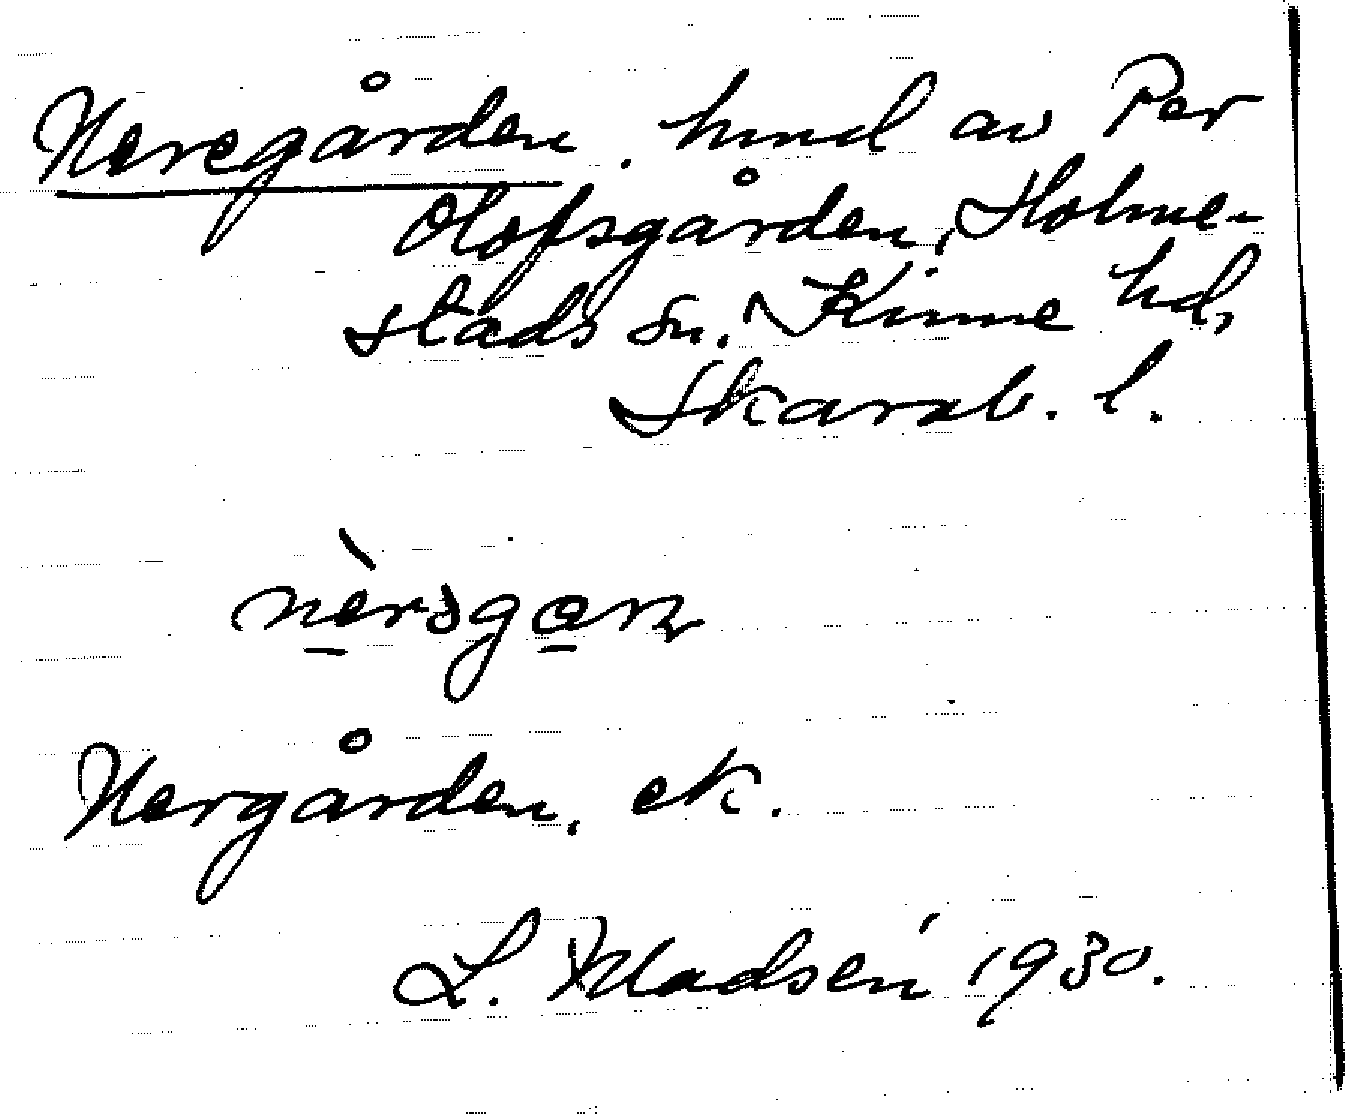 Neregården. hmd av Per
Olofsgården, Holme-
stads sn. Kinne hd,
Skarab. l.
nèrəgɑɳ
Nergården, ek.
L. Madsén 1930.